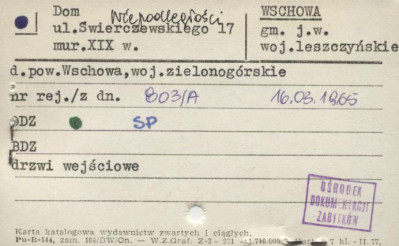 Dom Niepodległości WSCHOWA
ul.Świerczewskiego 17 gm. j.w.
mur.XIX w. woj.leszczyńskie
d.pow.Wschowa,woj.zielonogórskie
nr rej./z dn. 803/A 16.03.1965
ODZ SP
BDZ
drzwi wejściowe
OŚRODEK
DOKUMENTACJI
ZABYTKÓW
Karta katalogowa wydawnictw zwartych i ciągłych.
Pu-B-144, zam. 164/DW/On. — W.Z.Graf. Z-2 - 271 7 kl. - II. 77.